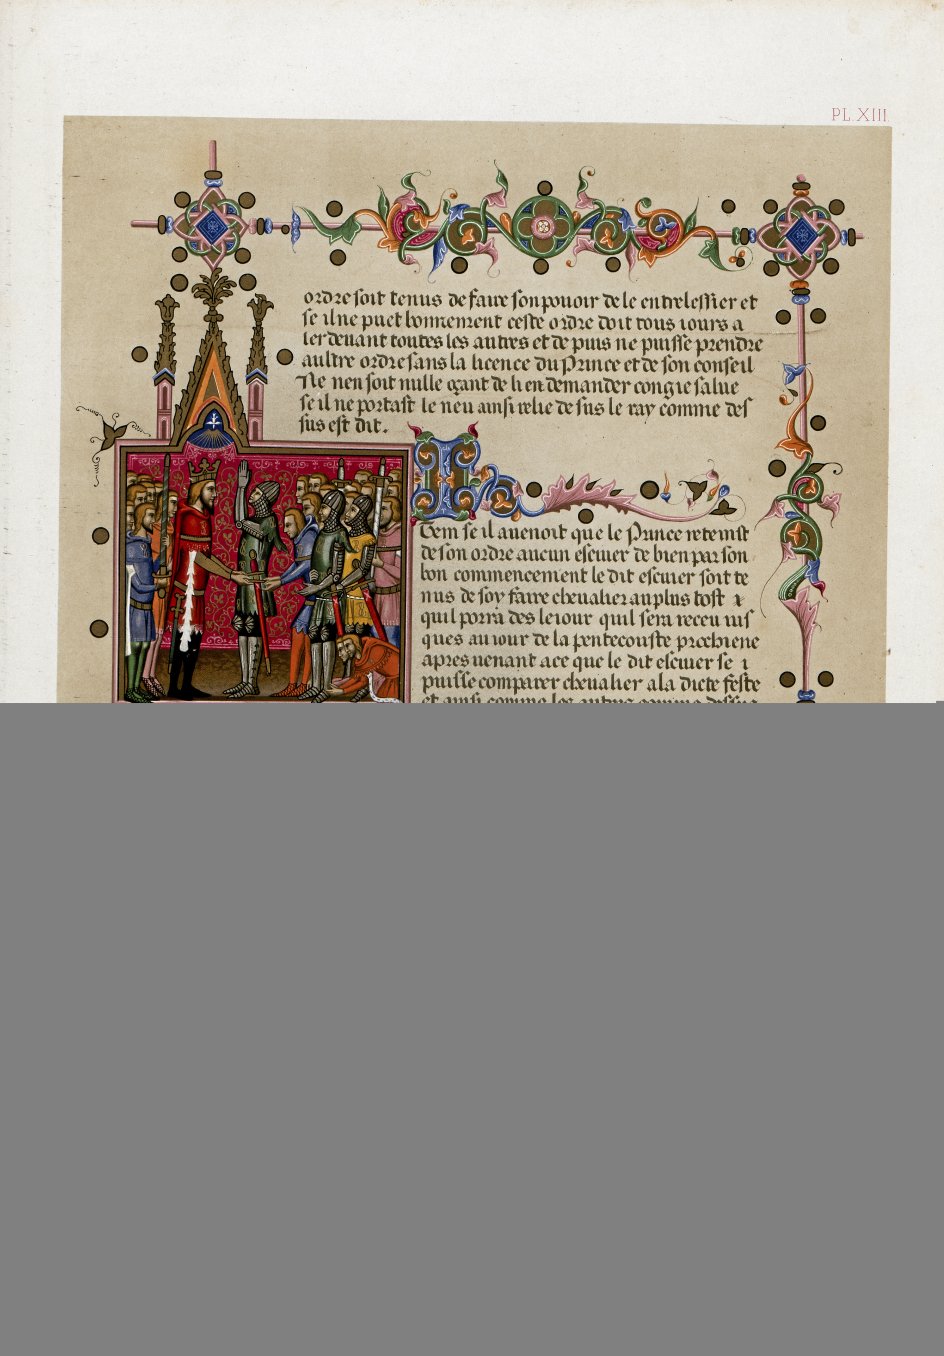 PL. XIII
ordre soit tenus de faire son pouoir de le entrelessier et
se il ne puet bonnement ceste ordre doit tous iours a
ler deuant toutes les autres et de puis ne puisse prendre
aultre ordre sans la licence du Prince et de son conseil
Ne nen soit nulle gant de li en demander congie salue
se il ne portast le neu ainsi relie de sus le ray comme des
sus est dit.
Item se il auenoit que le Prince reteinst
de son ordre aucun escuier de bien par son
bon commencement le dit escuier soit te
nus de soy faire cheualier au plus tost
quil porra des le iour quil sera receu ius
ques au iour de la penteconste prochiene
apres uenant a ce que le dit escuier se
puisse comparer cheualier a la dicte feste